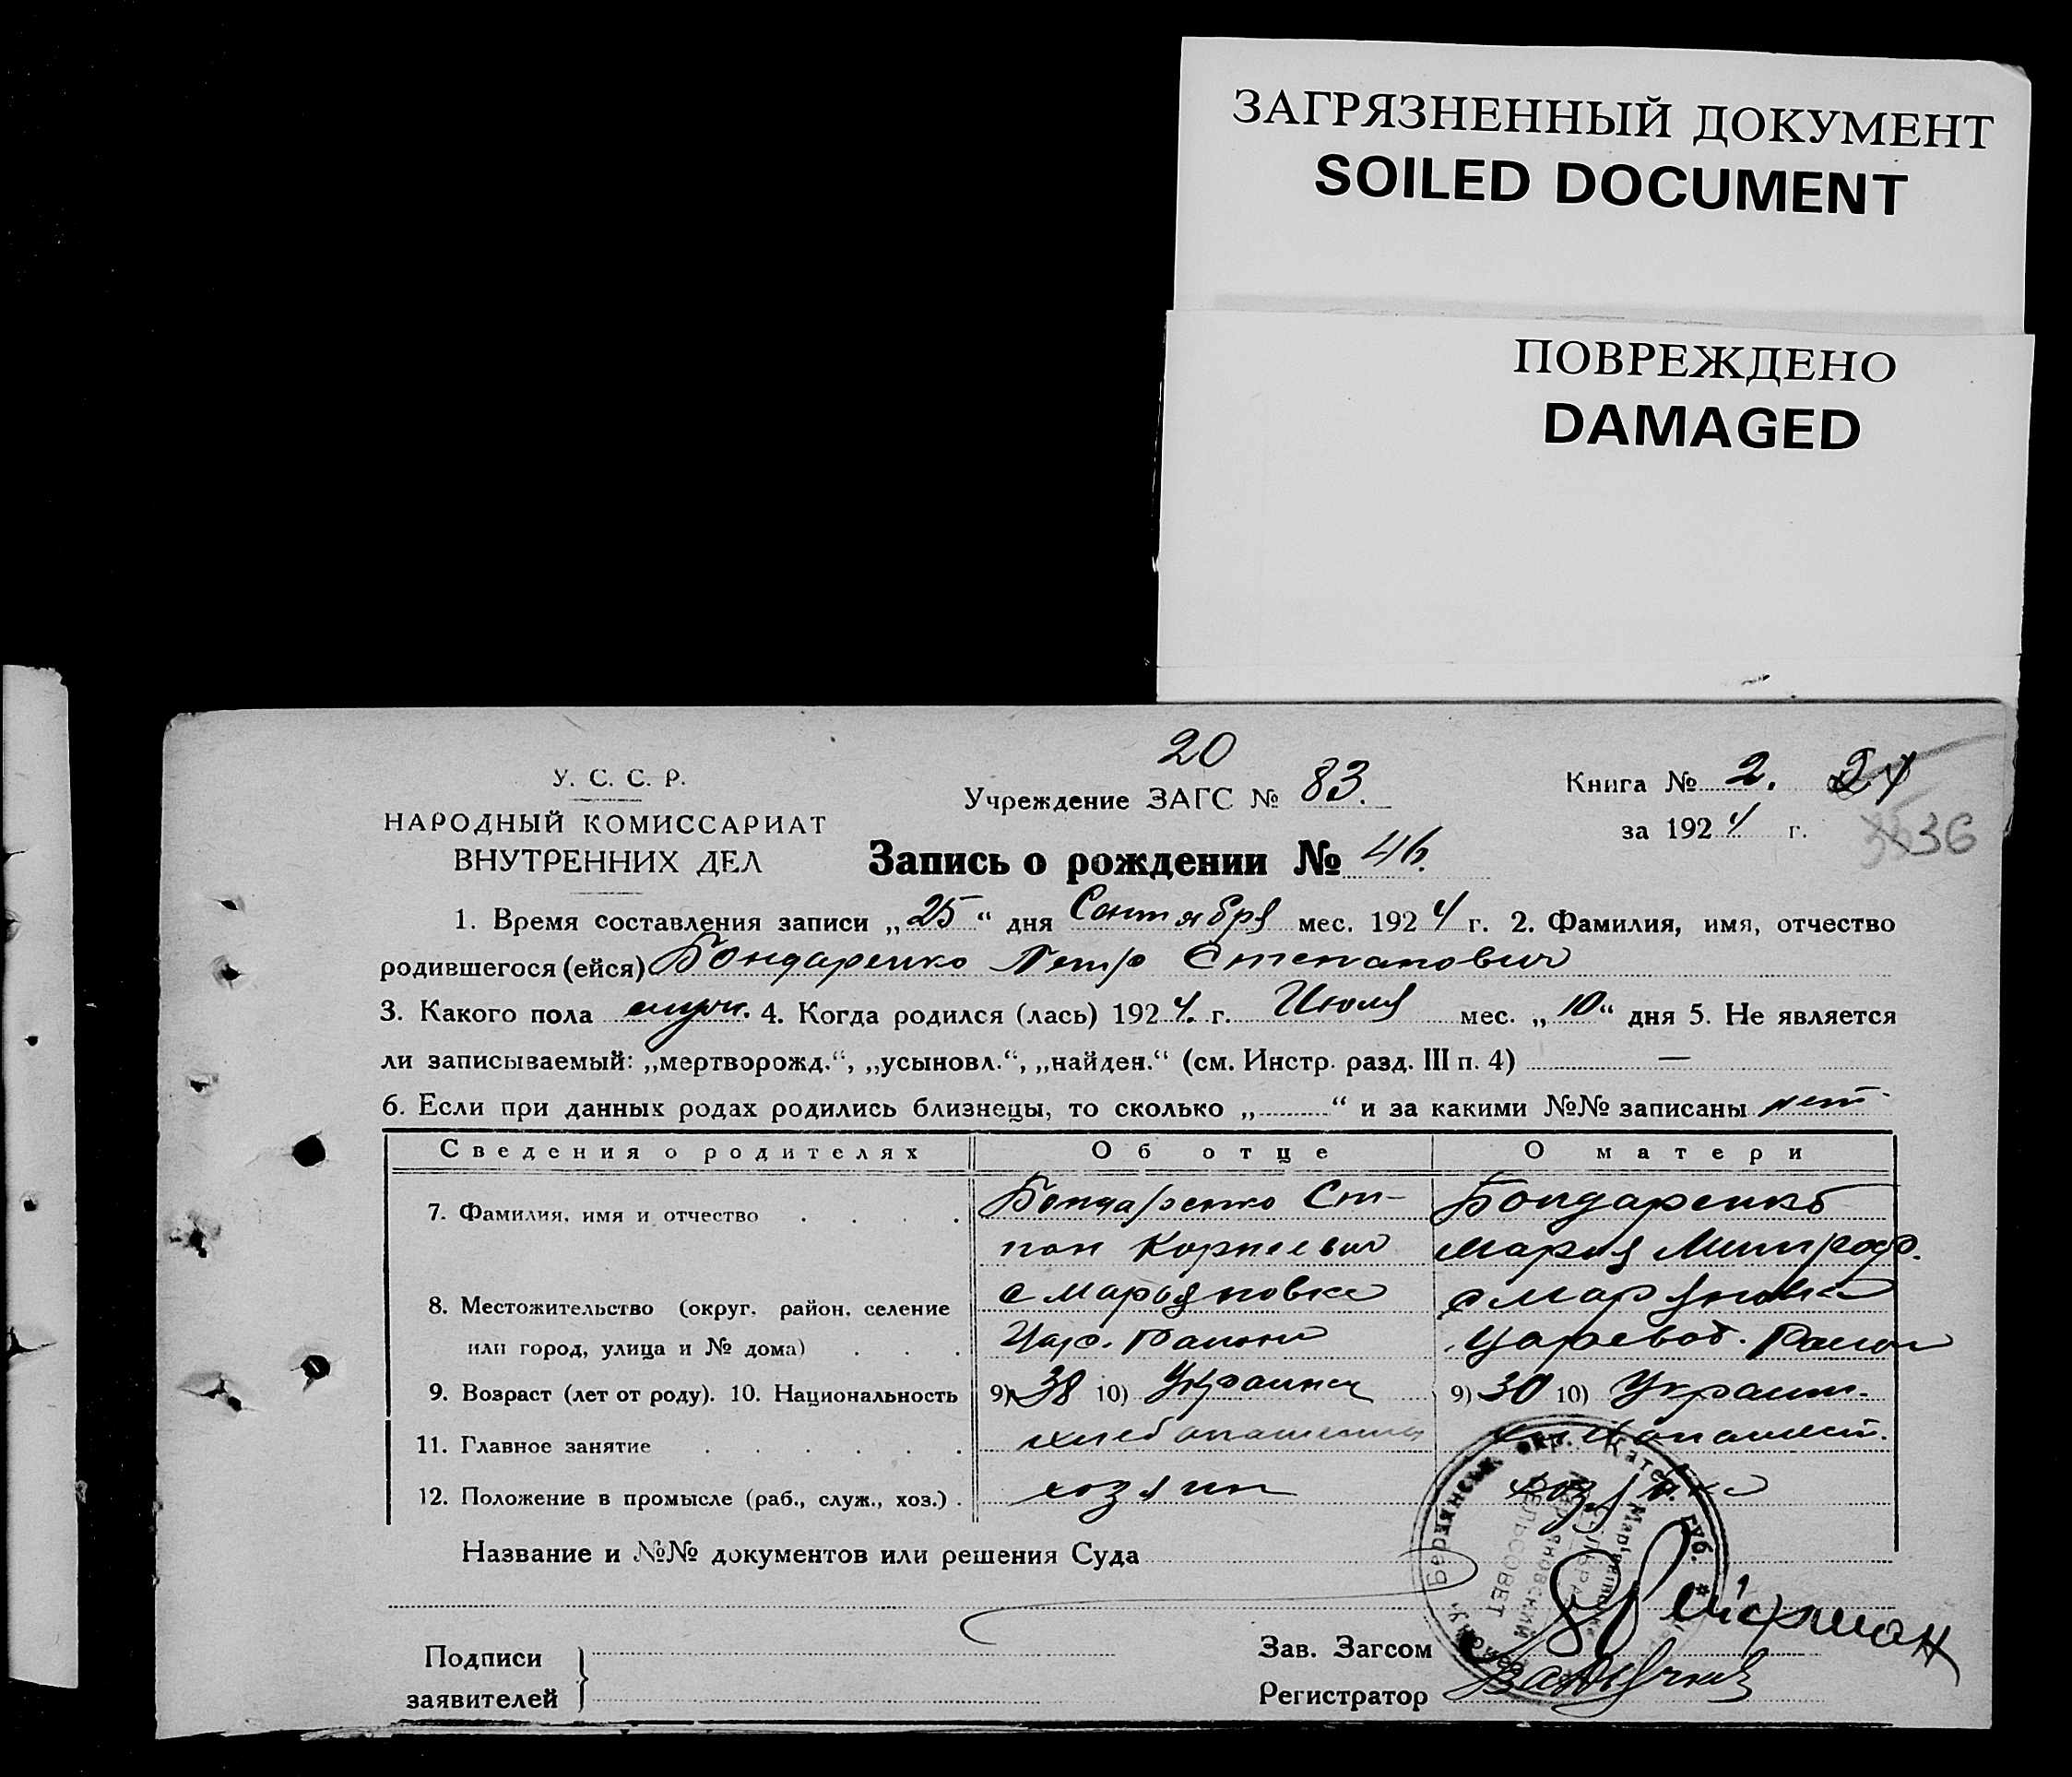 ЗАГРЯЗНЕННЫЙ ДОКУМЕНТ
SOILED DOCUMENT
ПОВРЕЖДЕНО
DAMAGED
У. С. С. Р.
НАРОДНЫЙ КОМИССАРИАТ
ВНУТРЕННИХ ДЕЛ
20
Учреждение ЗАГС № 83.
Запись о рождении № 46.
Книга № 2. 24
за 1924 г.
36
1. Время составления записи „25“ дня Сентября мес. 1924 г. 2. Фамилия, имя, отчество
родившегося (ейся) Бондаренко Петр Степанович
3. Какого пола муж. 4. Когда родился (лась) 1924. г. Июля мес. „10“ дня 5. Не является
ли записываемый: „мертворожд.“, „усыновл.“, „найден.“ (см. Инстр. разд. III п. 4) —
6. Если при данных родах родились близнецы, то сколько „ “ и за какими №№ записаны нет
Сведения о родителях Об отце О матери
7. Фамилия, имя и отчество Бондаренко Сте- Бондаренко
пан Корнеевич Мария Митроф.
8. Местожительство (округ, район, селение с Марьяновка с Марьяновка
или город, улица и № дома) Цар. Район Царевод. Район
9. Возраст (лет от роду). 10. Национальность 9) 38 10) Украинец 9) 30 10) Украин.
11. Главное занятие хлебопашество хлебопашест.
12. Положение в промысле (раб., служ., хоз.) хозяин хозяйка
Название и №№ документов или решения Суда
Бердянськ. окр. Катер. губ.
СЕЛЬСОВЕТ
Подписи
заявителей
Зав. Загсом
Регистратор